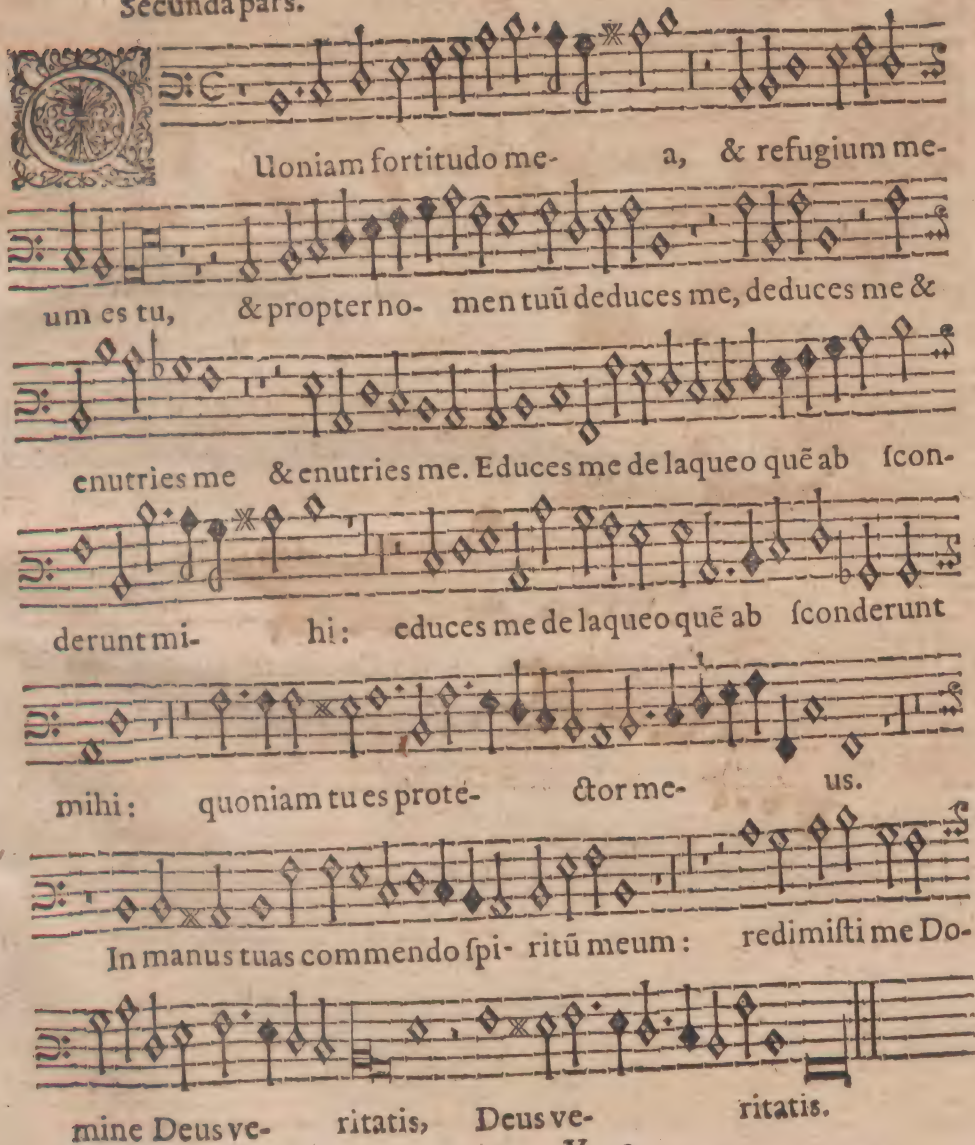 Secunda pars.
QUoniam fortitudo me- a, & refugium me-
um es tu, & propter no- men tuū deduces me, deduces me &
enutries me & enutries me. Educes me de laqueo quē ab ſcon-
derunt mi- hi: educes me de laqueo quē ab ſconderunt
mihi: quoniam tu es prote- ctor me- us.
In manus tuas commendo ſpi- ritū meum: redimiſti me Do-
mine Deus ve- ritatis, Deus ve- ritatis.